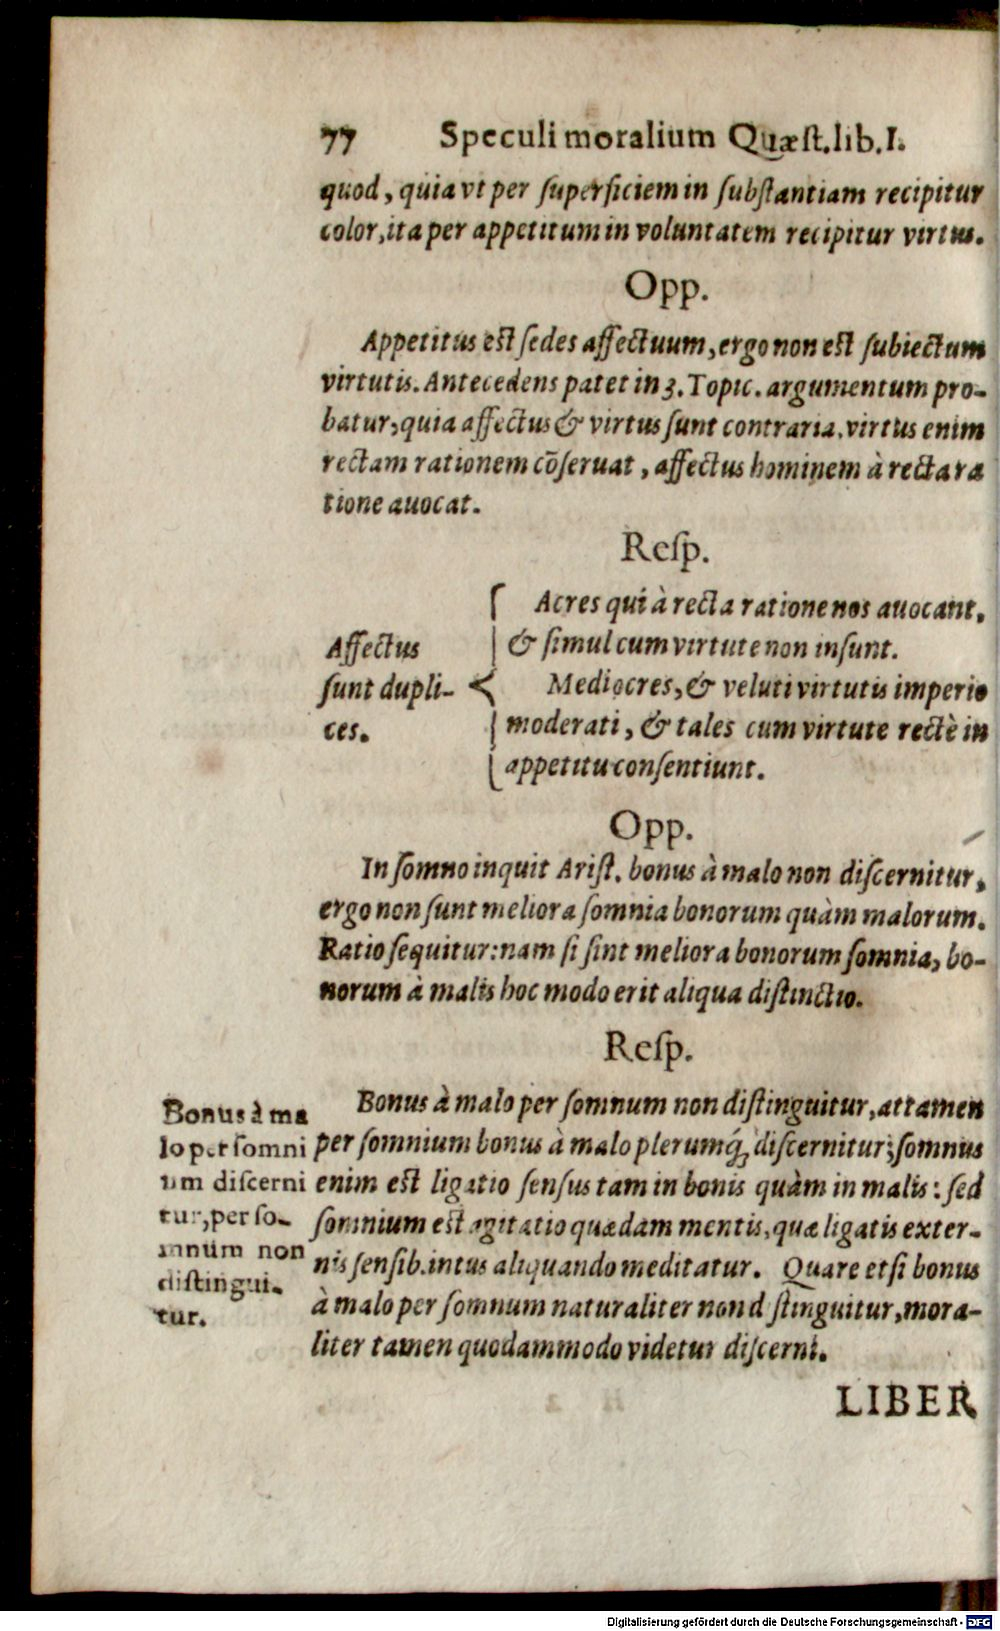 77 Speculi moralium Quæst. lib. I.
quod, quia vt per superficiem in substantiam recipitur
color, ita per appetitum in voluntatem recipitur virtus.
Opp.
Appetitus est sedes affectuum, ergo non est subiectum
virtutis. Antecedens patet in 3. Topic. argumentum pro-
batur, quia affectus & virtus sunt contraria, virtus enim
rectam rationem cōseruat, affectus hominem à recta ra
tione auocat.
Resp.
Affectus
sunt dupli-
ces.
Acres qui à recta ratione nos auocant,
& simul cum virtute non insunt.
Mediocres, & veluti virtutis imperio
moderati, & tales cum virtute rectè in
appetitu consentiunt.
Opp.
In somno inquit Arist. bonus à malo non discernitur,
ergo non sunt meliora somnia bonorum quàm malorum.
Ratio sequitur: nam si sint meliora bonorum somnia, bo-
norum à malis hoc modo erit aliqua distinctio.
Resp.
Bonus à ma
lo per somni
um discerni
tur, per so-
mnum non
distingui-
tur.
Bonus à malo per somnum non distinguitur, attamen
per somnium bonus à malo plerumq́; discernitur; somnus
enim est ligatio sensus tam in bonis quàm in malis: sed
somnium est agitatio quædam mentis, quæ ligatis exter-
nis sensib. intus aliquando meditatur. Quare etsi bonus
à malo per somnum naturaliter non d stinguitur, mora-
liter tamen quodammodo videtur discerni.
LIBER
Digitalisierung gefördert durch die Deutsche Forschungsgemeinschaft - DFG